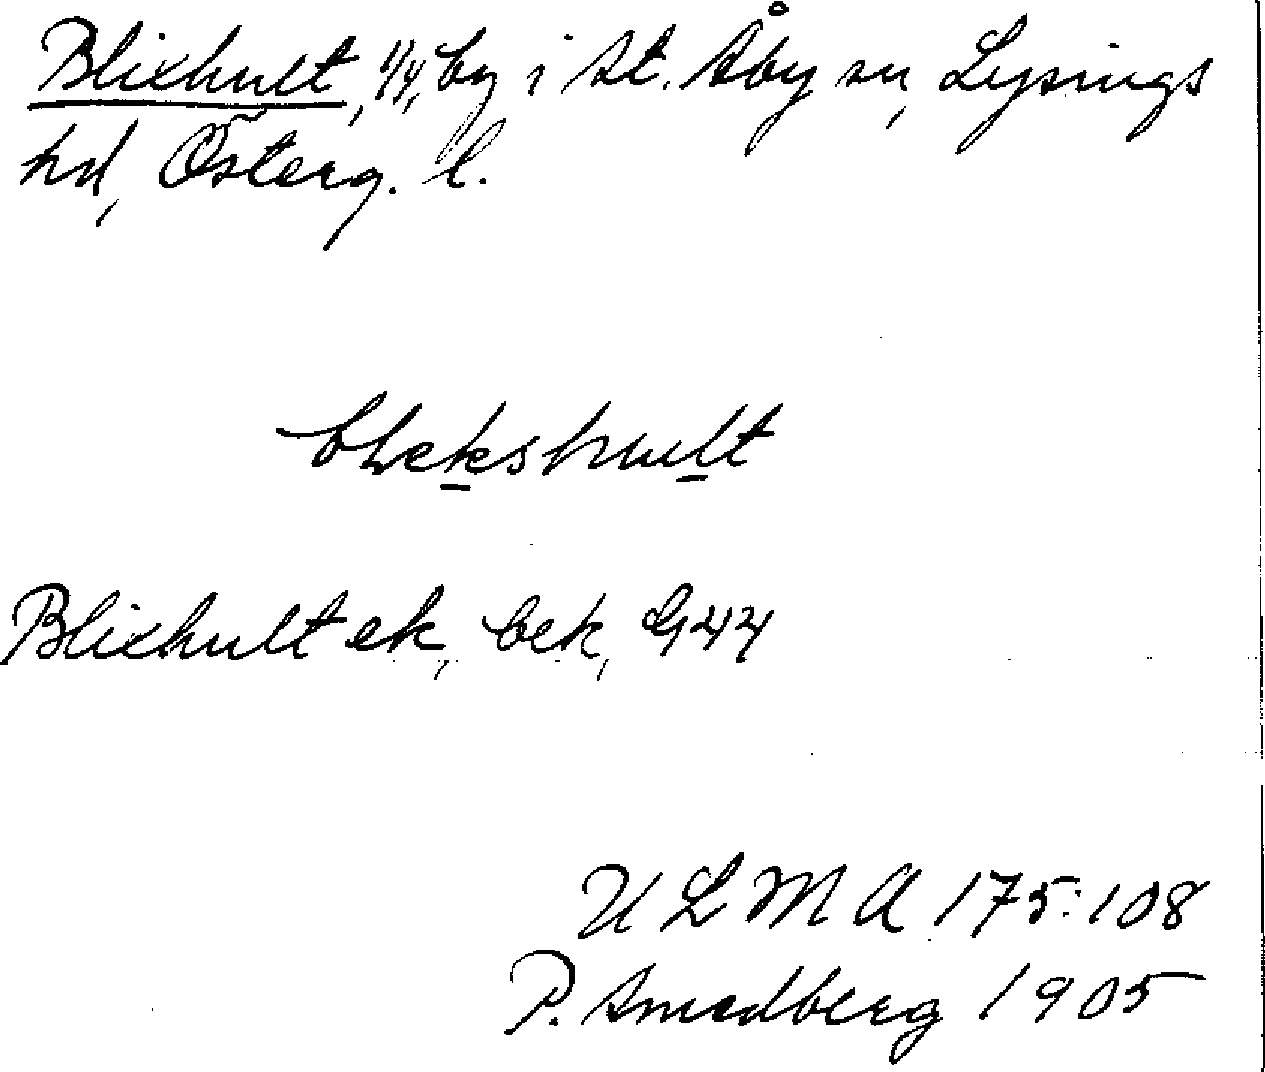 Blixhult, 1/4, by i St. Åby sn, Lysings
hd, Österg. l.
blekshult
Blixhult ek, bek, G44
U L M A 175:108
P. Smedberg 1905